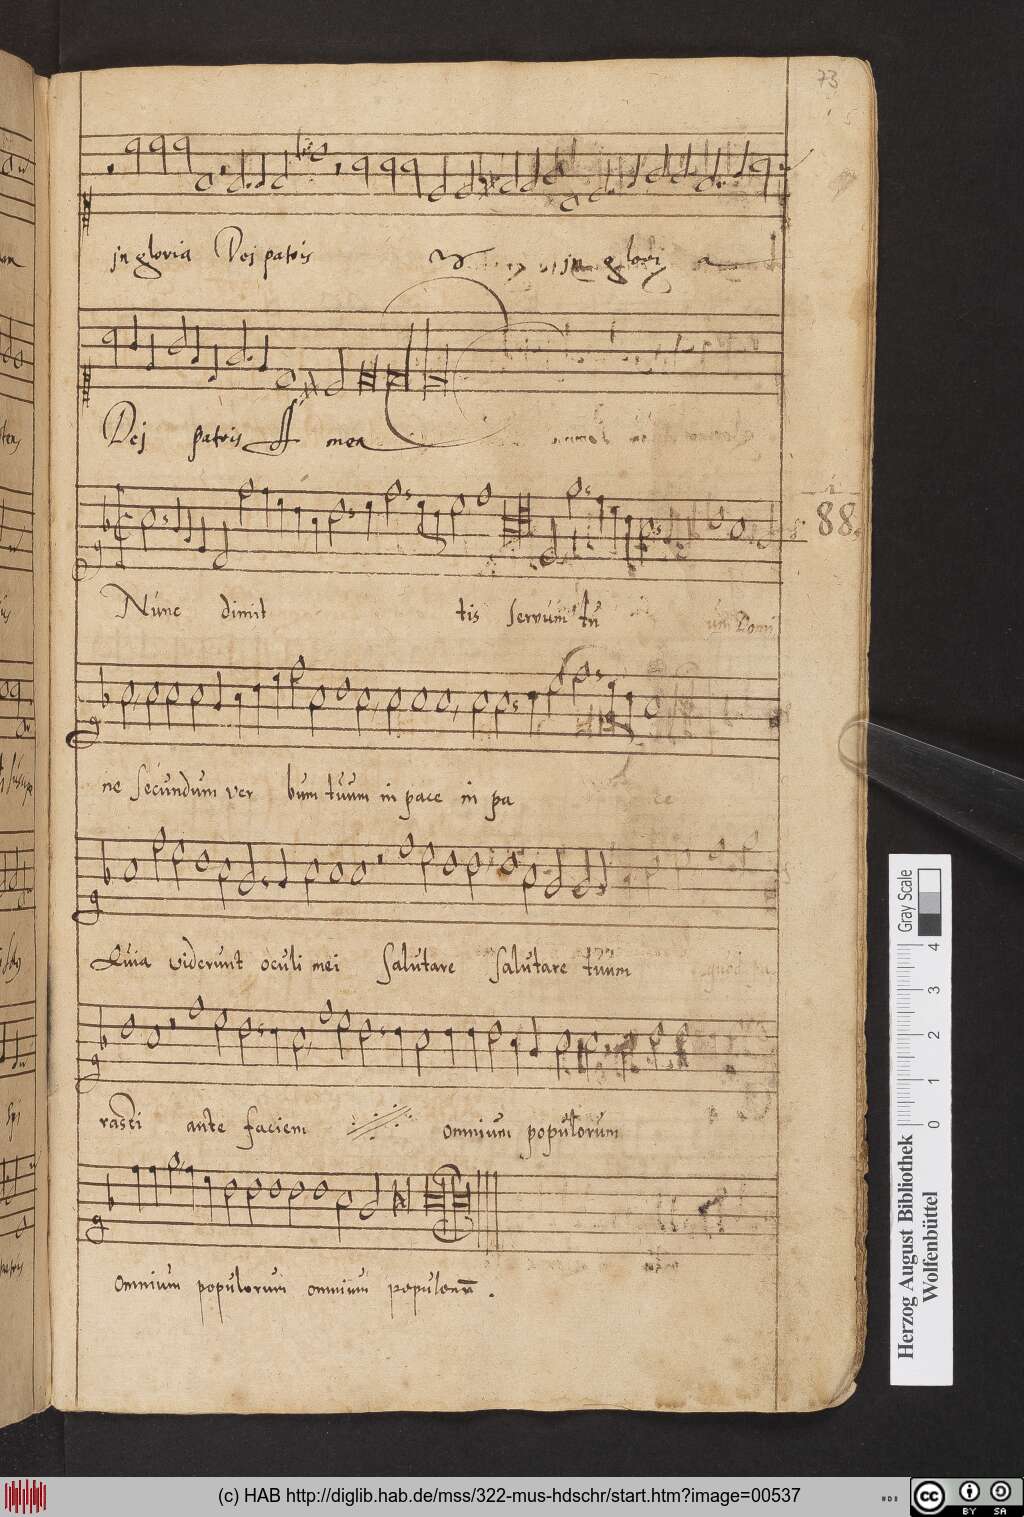 73
jn gloria Dej patris jn glori a
Dej patris A men
88.
Nunc dimit tis servum tu um Domi
ne secundum ver bum tuum in pace in pa ce
Quia viderunt oculi mei Salutare Salutare tuum quod pa
rasti ante faciem omnium populorum
Omnium populorum omnium populorum.
Gray Scale
0 1 2 3 4
Herzog August Bibliothek
Wolfenbüttel
(c) HAB http://diglib.hab.de/mss/322-mus-hdschr/start.htm?image=00537
cc BY SA